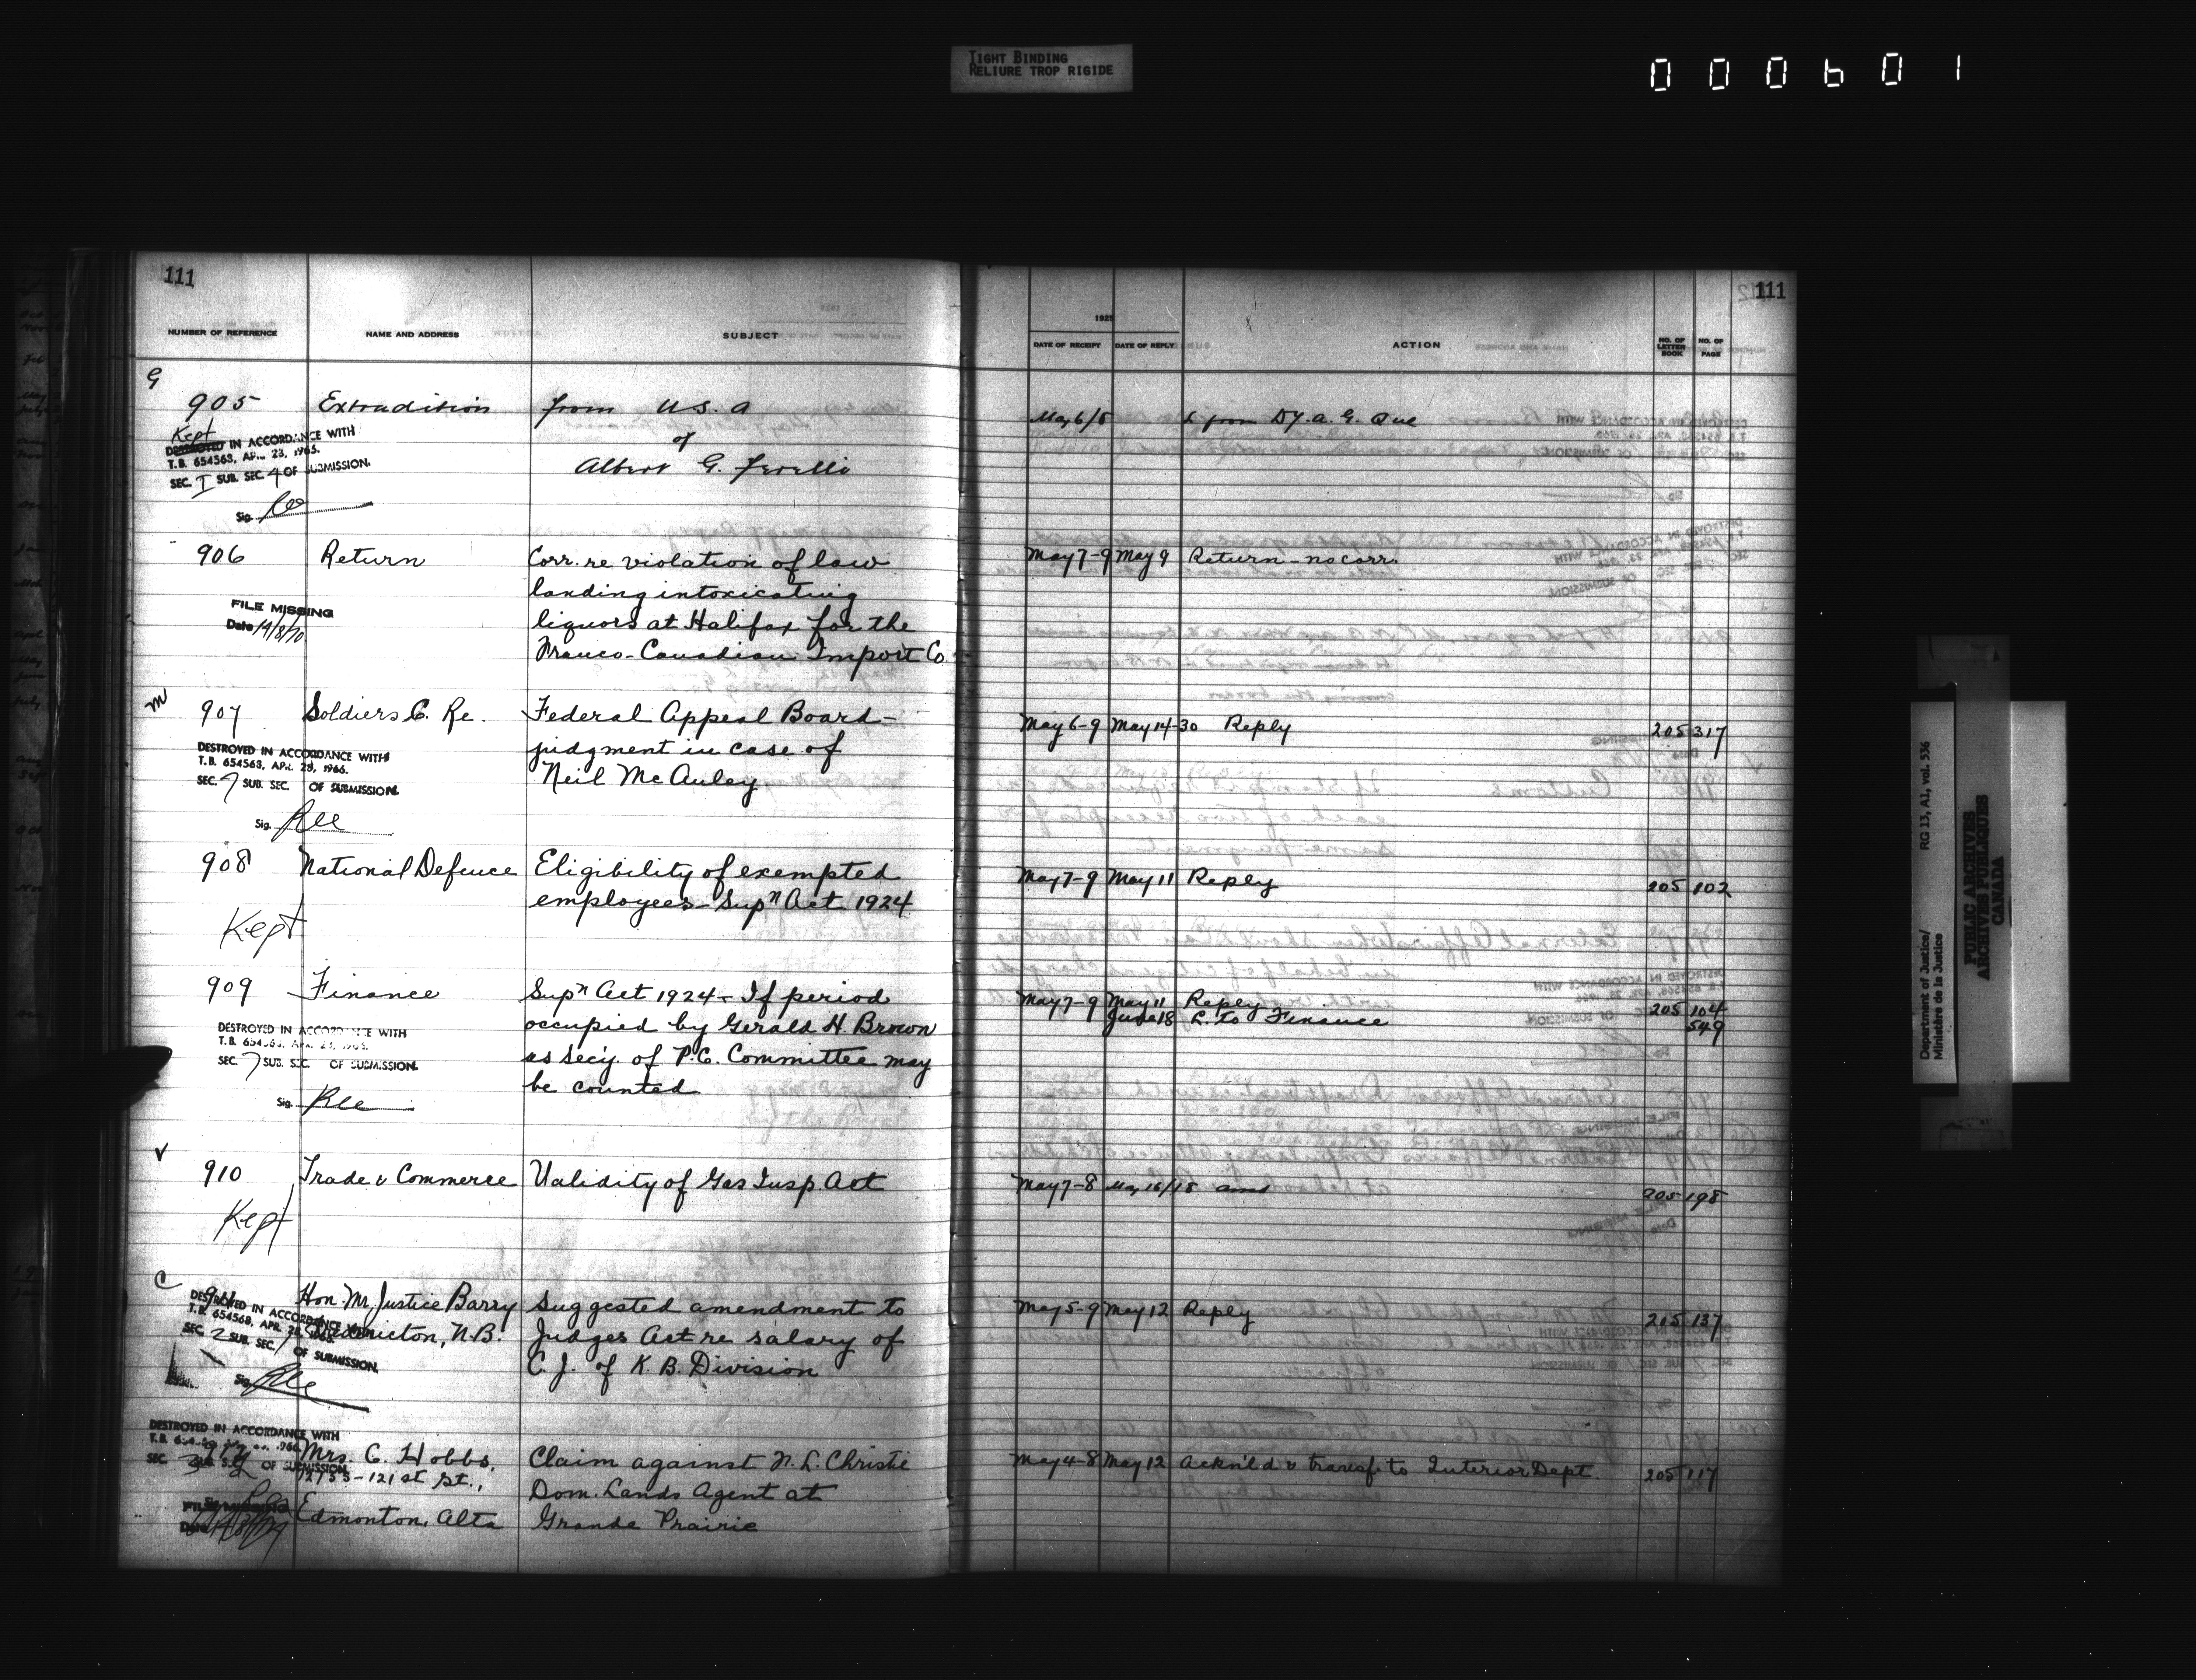 TIGHT BINDING
RELIURE TROP RIGIDE
000601
111
NUMBER OF REFERENCE NAME AND ADDRESS SUBJECT
G
905 Extradition from U.S.A
of
Albert G.
Kept
DESTROYED IN ACCORDANCE WITH
T.B. 654563, APR. 23, 1965.
SEC. I SUB. SEC. 4 OF SUBMISSION.
Sig.
906 Return Corr. re violation of law
landing intoxicating
liquors at Halifax for the
Franco-Canadian Import Co
FILE MISSING
Date 14/8/70
M
907 Soldiers C. Re. Federal Appeal Board-
judgment in case of
Neil McAuley
DESTROYED IN ACCORDANCE WITH
T.B. 654563, APR. 28, 1966.
SEC. 7 SUB. SEC. OF SUBMISSION.
Sig.
908 National Defence Eligibility of exempted
employees - Supn Act 1924
Kept
909 Finance Supn Act 1924 - If period
occupied by Gerald H. Brown
as Sec'y. of P.C. Committee may
be counted
DESTROYED IN ACCORDANCE WITH
T.B. 654563, APR. 28, 1966.
SEC. 7 SUB. SEC. OF SUBMISSION.
Sig.
V
910 Trade & Commerce Validity of Gas Insp. Act
Kept
C
911 Hon. Mr. Justice Barry Suggested amendment to
Fredericton, N.B. Judges Act re salary of
C. J. of K. B. Division
DESTROYED IN ACCORDANCE WITH
T.B. 654568, APR. 28, 1966.
SEC. 2 SUB. SEC. 1 OF SUBMISSION.
Sig.
DESTROYED IN ACCORDANCE WITH
912 Mrs. C. Hobbs, Claim against N. L. Christie
12755-121st St., Dom. Lands Agent at
Edmonton, Alta Grande Prairie
SEC. SUB. SEC. OF SUBMISSION
FILE MISSING
Date
111
1925
DATE OF RECEIPT DATE OF REPLY ACTION NO. OF LETTER BOOK NO. OF PAGE
May 6/8 L from Dy. A. G. Que
May 7-9 May 9 Return - no corr.
May 6-9 May 14-30 Reply 205 317
May 7-9 May 11 Reply 205 102
May 7-9 May 11 Reply 205 104
June 18 L. to Finance 549
May 7-8 May 16/18 ansd 205 198
May 5-9 May 12 Reply 205 137
May 4-8 May 12 Ackn'ld & transf. to Interior Dept. 205 117
Department of Justice/ RG 13, A1, vol. 536
Ministère de la Justice
PUBLIC ARCHIVES
ARCHIVES PUBLIQUES
CANADA